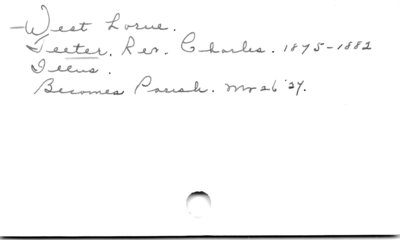 - West Lorne.
Teeter. Rev. Charles. 1875-1882
Illus.
Becomes Parish. Mr 26 '27.